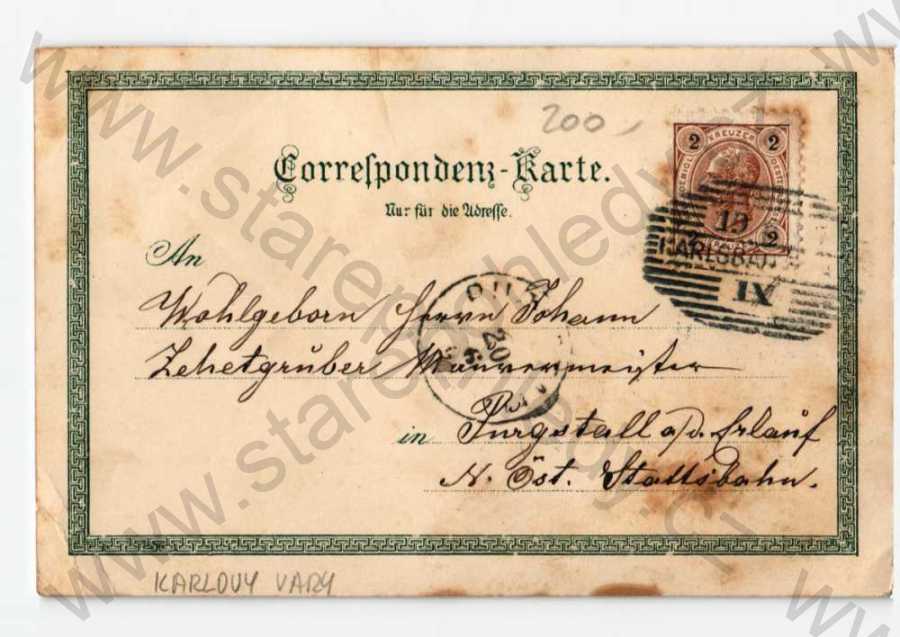 200
Correspondenz-Karte.
Nur für die Adresse.
2 KREUZER 2
2
19
KARLSBAD
IX
An
Wohlgeborn Herrn Johann
Zehetgruber Maurermeister
20
in Purgstall a/d. Erlauf
N. Öst. Stattsbahn.
KARLOVY VARY
www.starepohledy.cz